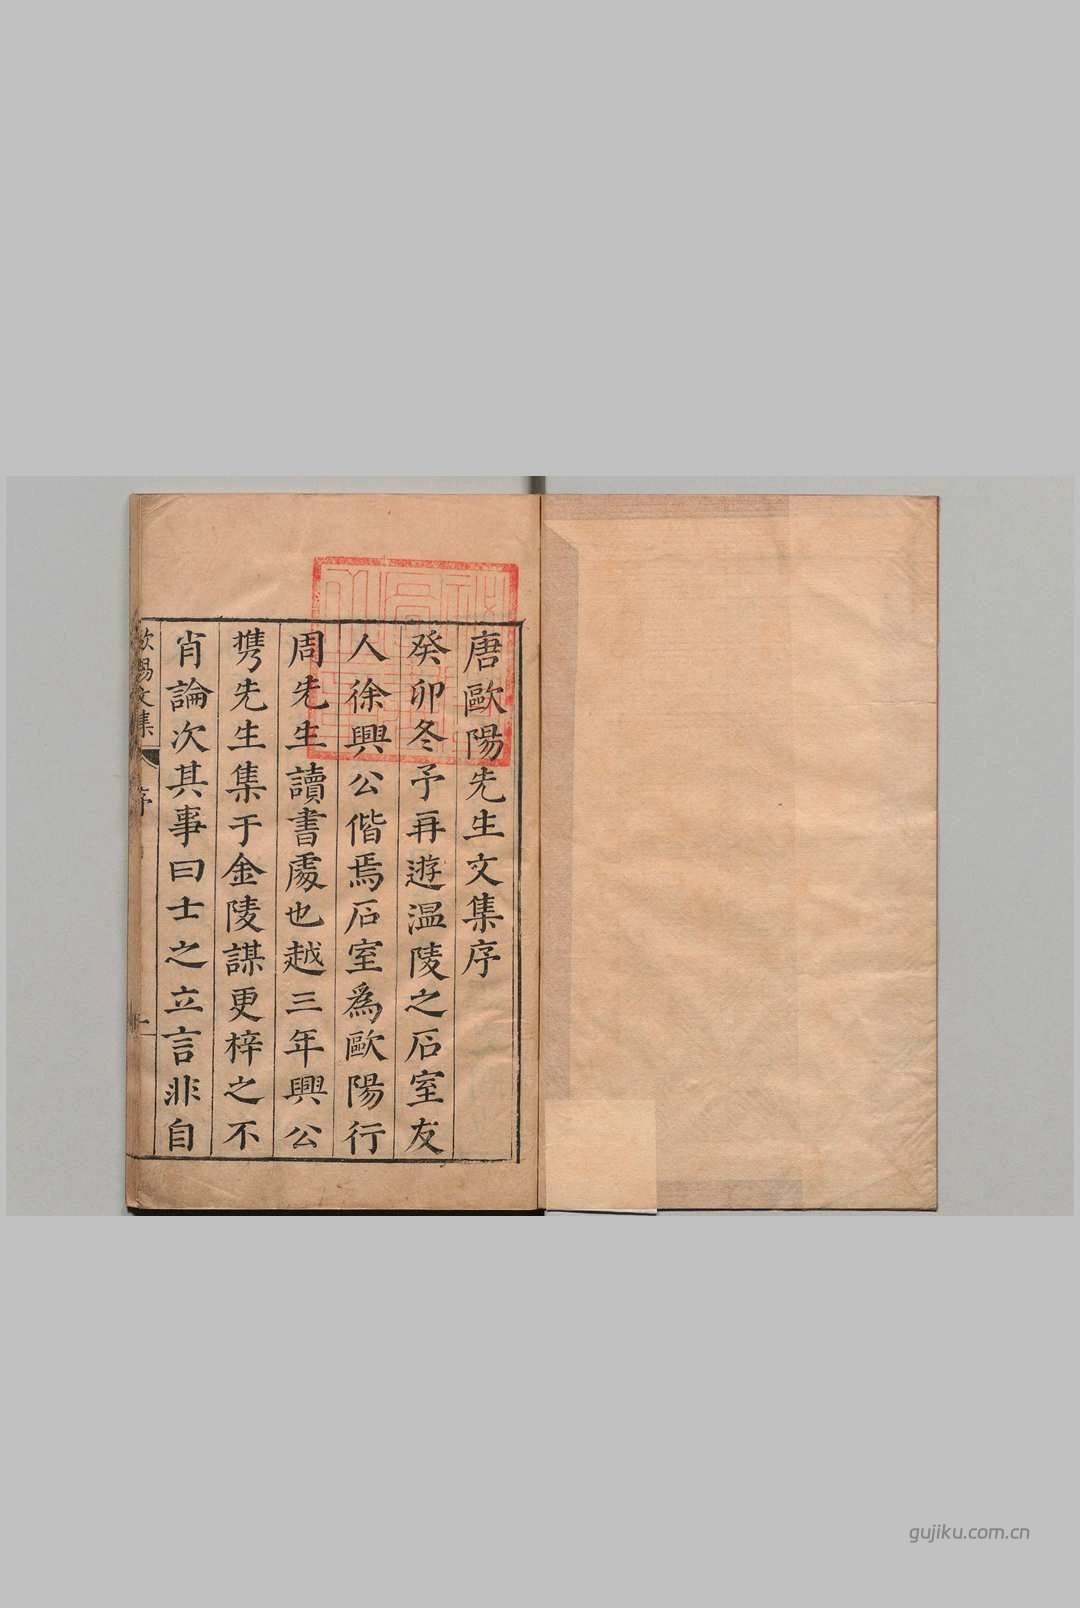 唐歐陽先生文集序
癸卯冬予再遊温陵之石室友
人徐興公偕焉石室為歐陽行
周先生讀書處也越三年興公
携先生集于金陵謀更梓之不
肖論次其事曰士之立言非自
文集
序
一
gujiku.com.cn